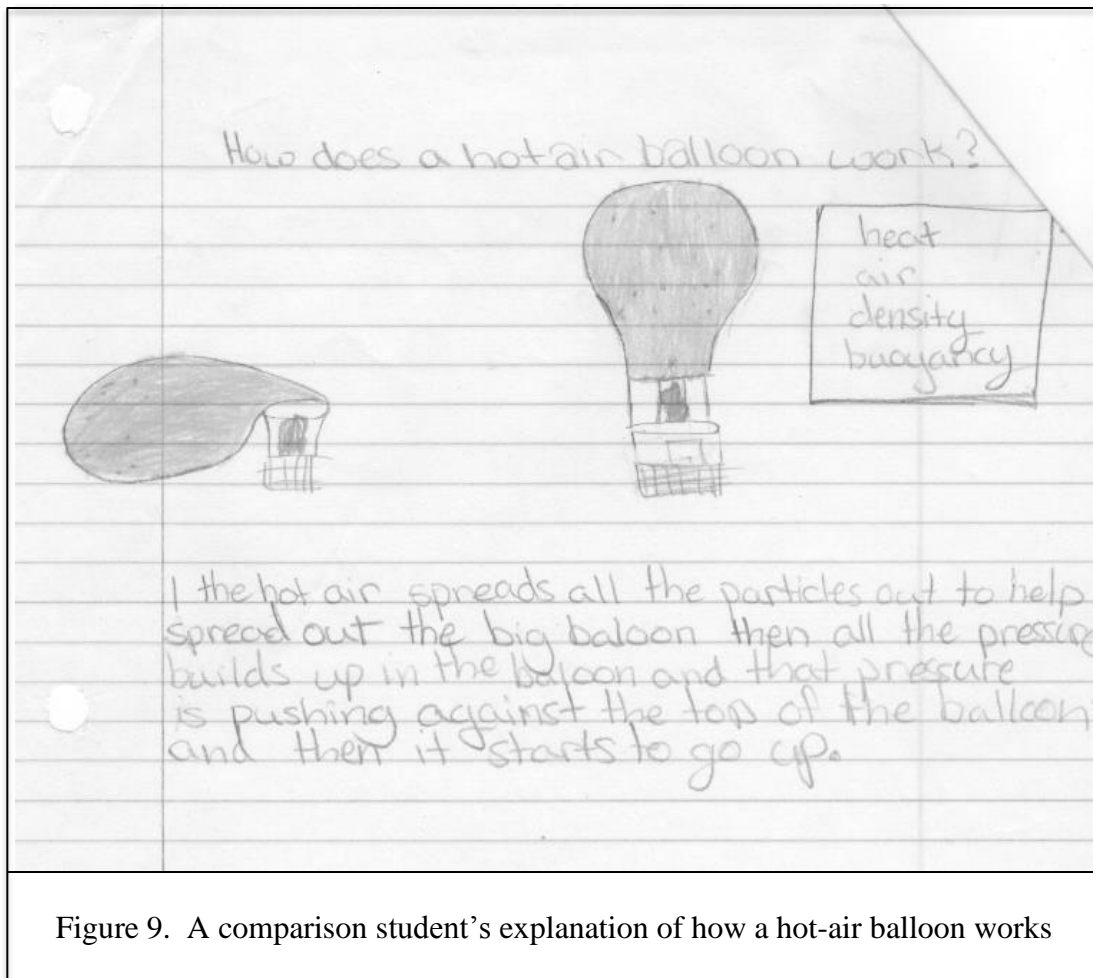 How does a hot air balloon work?
heat
air
density
buoyancy
I the hot air spreads all the particles out to help
spread out the big baloon then all the pressure
builds up in the baloon and that pressure
is pushing against the top of the balloon
and then it starts to go up.
Figure 9. A comparison student's explanation of how a hot-air balloon works